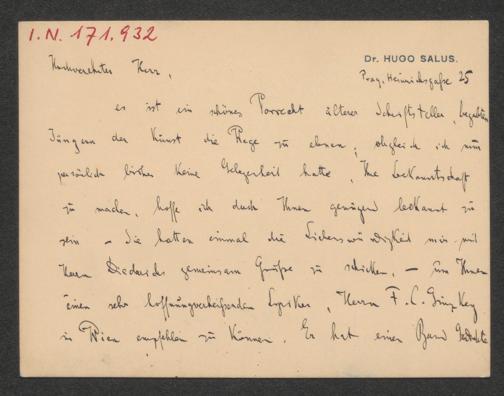 I.N. 171.932
Dr. HUGO SALUS.
Prag, Heinrichsgasse 25
Hochverehrter Herr,
es ist ein schönes Vorrecht älterer Schriftsteller, begabten
Jüngern der Kunst die Wege zu ebnen; obgleich ich nun
persönlich bisher keine Gelegenheit hatte, Ihre Bekanntschaft
zu machen, hoffe ich doch Ihnen genügend bekannt zu
sein – Sie hatten einmal die Liebenswürdigkeit mir mit
Herrn Diederichs gemeinsam Grüsse zu schicken, – um Ihnen
einen sehr hoffnungsverheissenden Lyriker, Herrn F. C. Ginzkey
in Wien empfehlen zu können. Er hat einen Band Gedichte